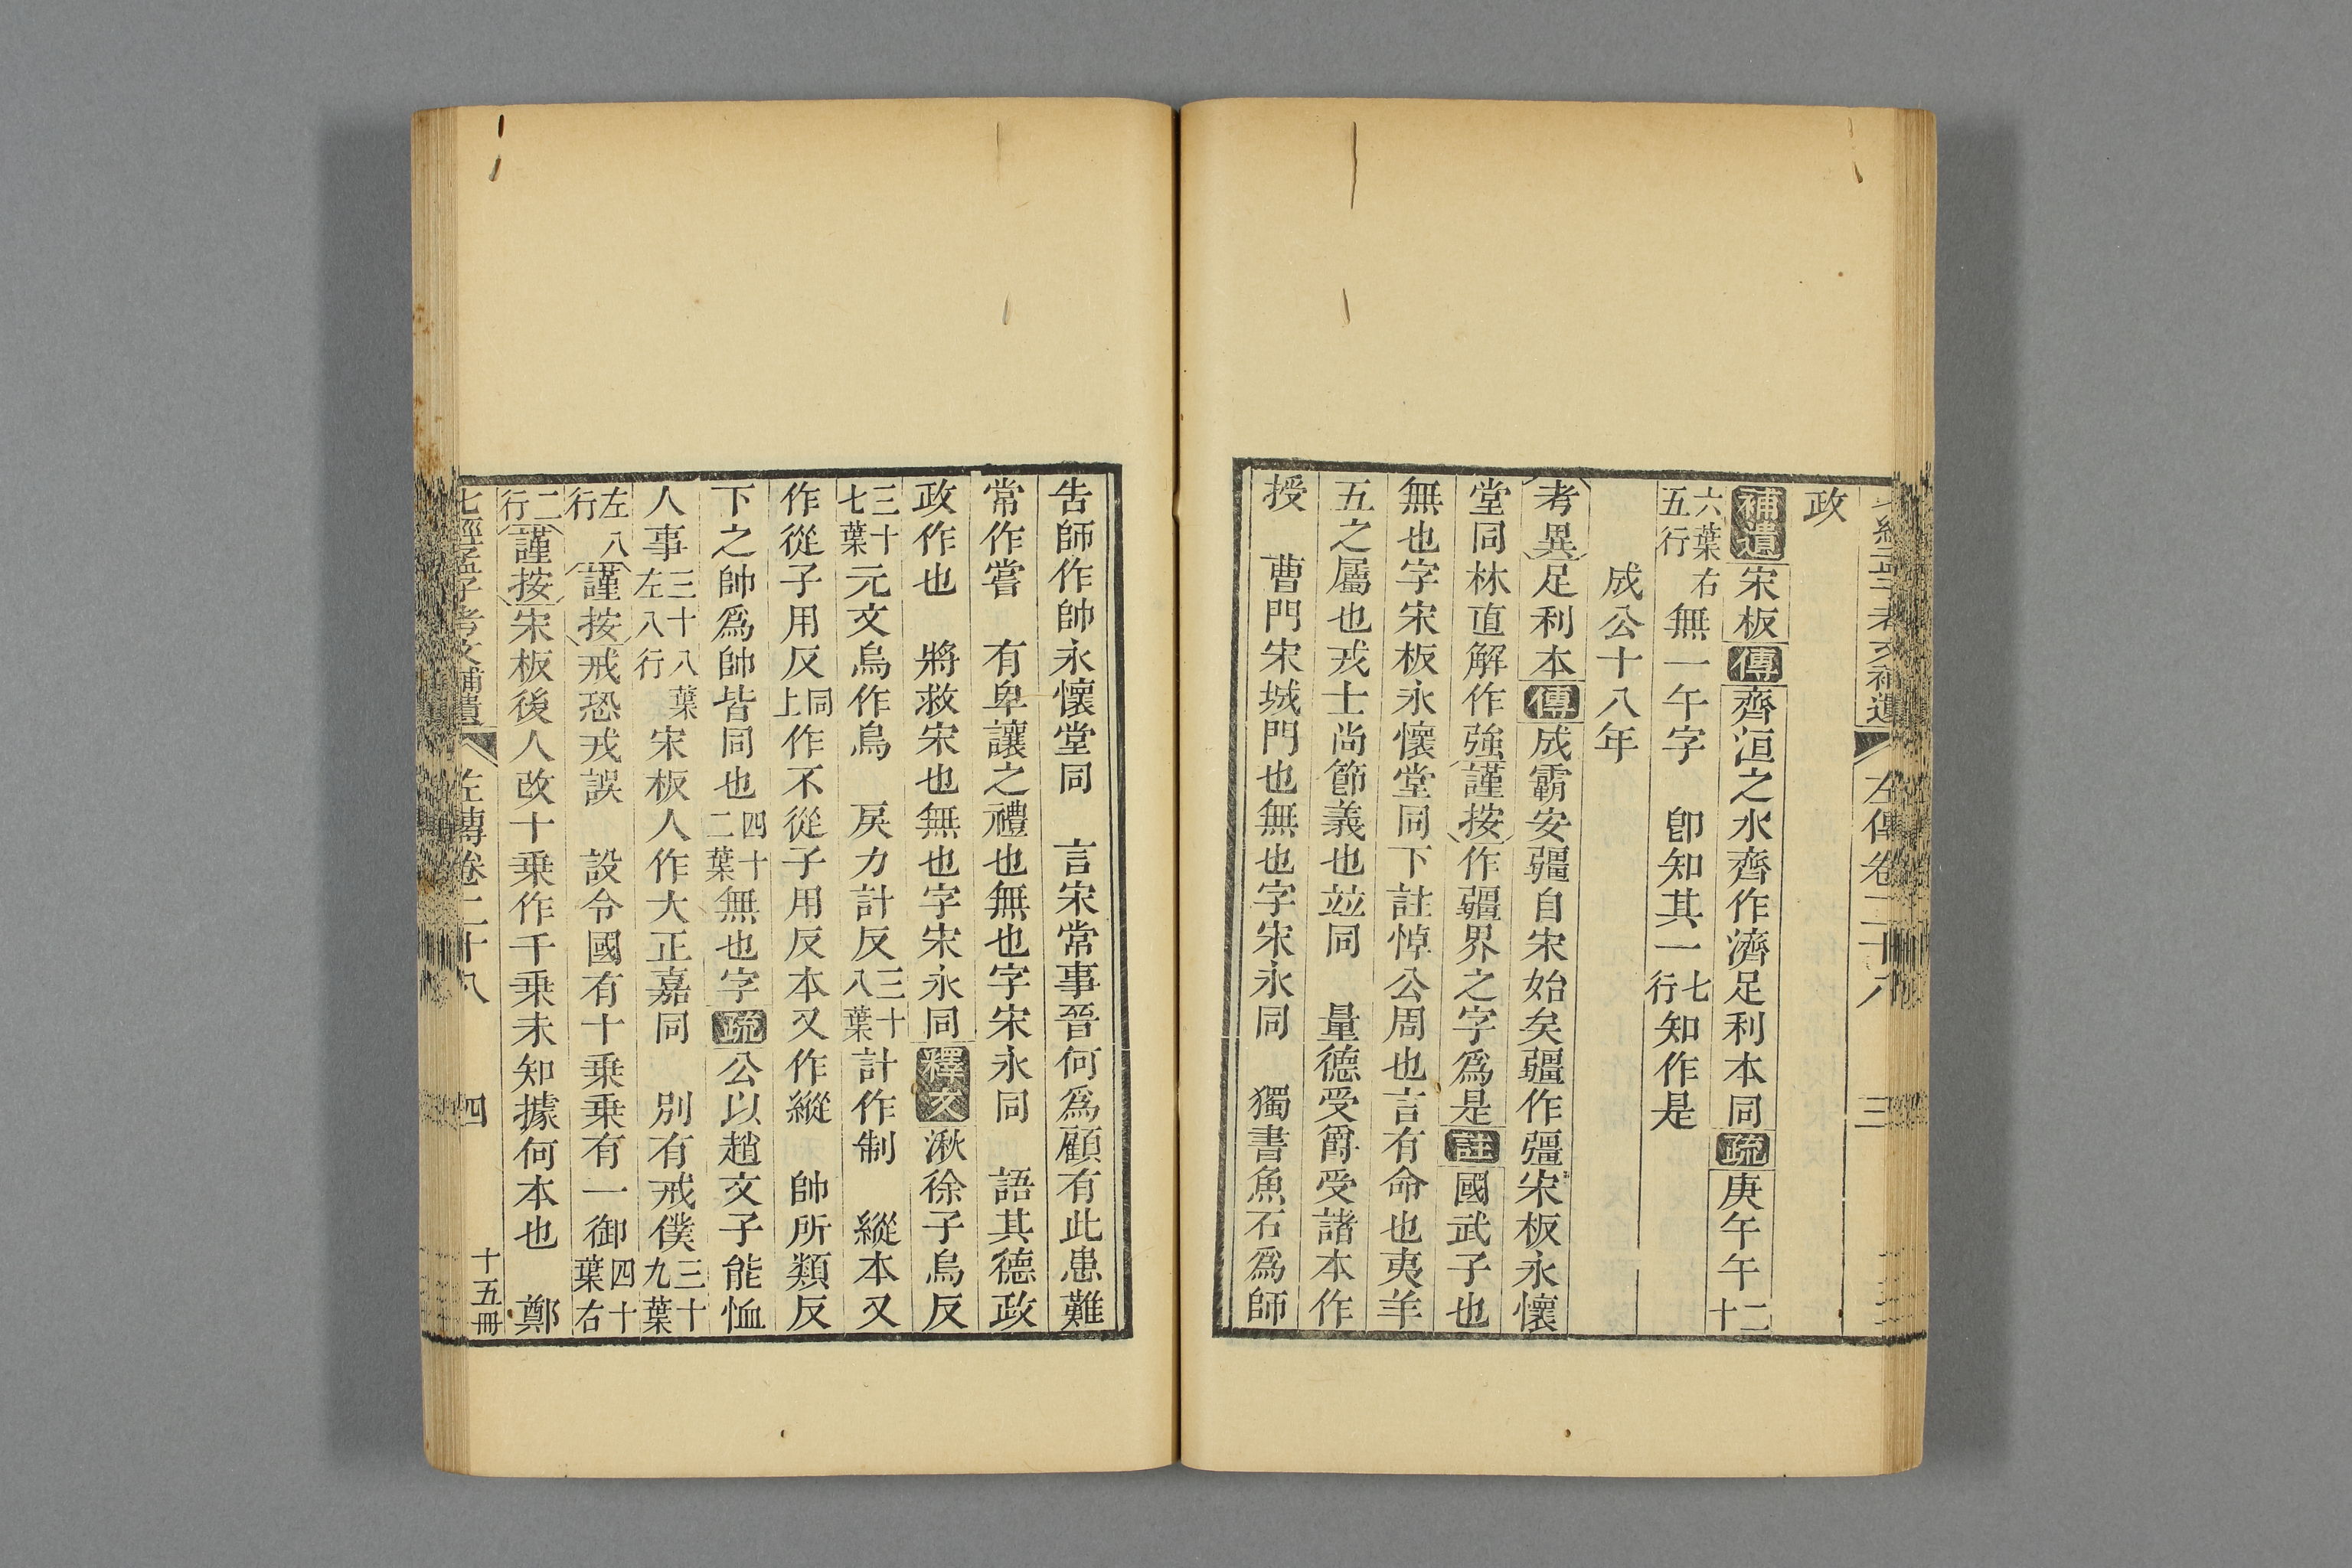 七經孟子考文補遺 左傳卷二十八 三
政
補遺宋板傳齊洹之水齊作濟足利本同疏庚午午二十
六葉右五行無一午字 卽知其一七行知作是
成公十八年
考異足利本傳成霸安疆自宋始矣疆作彊宋板永懷
堂同林直解作強謹按作疆界之字爲是註國武子也
無也字宋板永懷堂同下註悼公周也言有命也夷羊
五之屬也戎士尚節義也竝同 量德受爵受諸本作
授 曹門宋城門也無也字宋永同 獨書魚石爲師
告師作帥永懷堂同 言宋常事晉何爲顧有此患難
常作嘗 有卑讓之禮也無也字宋永同 語其德政
政作也 將救宋也無也字宋永同釋文湫徐子烏反
三十七葉元文烏作鳥 戾力計反三十八葉計作制 縱本又
作從子用反同上作不從子用反本又作縱 帥所類反
下之帥爲帥皆同也四十二葉無也字疏公以趙文子能恤
人事三十八葉左八行宋板人作大正嘉同 別有戒僕三十九葉
左八行謹按戒恐戎誤 設令國有十乗乗有一御四十葉右
二行謹按宋板後人改十乗作千乗未知據何本也 鄭
七經孟子考文補遺 左傳卷二十八 四 十五冊